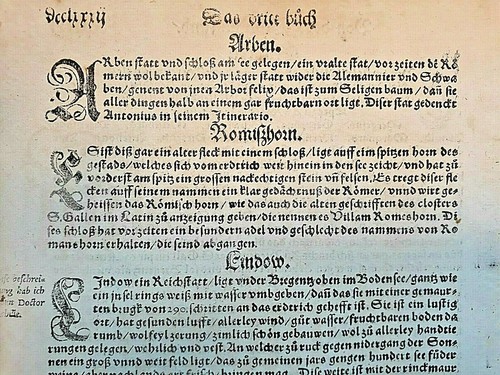 dcclxxxij Das dritt bůch
Arben.
ARben statt vnd schloß am see gelegen/ein vralte stat/vor zeiten dē Rö
mern wol bekant/vnd jr läger statt wider die Alemannier vnd Schwa
ben/genent von jnen Arbor felix/das ist zum Seligen baum/dañ sie
aller dingen halb an einem gar fruchtbarn ort ligt. Diser stat gedenckt
Antonius in seinem Itinerario.
Romißhorn.
ES ist diß gar ein alter fleck mit einem schloß/ligt auff eim spitzen horn des
gestads/welches sich vom erdtrich weit hinein in den see zeicht/vnd hat zů
vorderst am spitz ein grossen nackechtigen stein vñ felsen. Es tregt diser fle
cken auff seinem nammen ein klar gedächtnuß der Römer/vnnd wirt ge-
heissen das Römischhorn/wie das auch die alten geschrifften des closters
S. Gallen im Latin zů anzeigung geben/die nennen es Villam Romeshorn. Di
ses schloß hat vorzeiten ein besondern adel vnd geschlecht des nammens von Ro
manshorn erhalten/die seind abgangen.
Lindow.
LIndow ein Reichstatt/ligt vnder Bregentz oben im Bodensee/gantz wie
ein jnsel rings weiß mit wasser vmbgeben/dañ das sie mit einer gemaur-
ten bruck von 290. schritten an das erdtrich gehefft ist. Sie ist ein lustig
ort/hat gesunden lufft/allerley wind/gůt wasser/fruchtbaren boden da
rumb/wolfeyl zerung/zimlich schön gebauwen/wol zů allerley handtie
rungen gelegen/wehrlich vnd vest. An welcher zů ruck gegen nidergang der Son-
nen ein groß vnnd weit feld ligt/das zů gemeinen jars gengen hundert see füder
weins
beschrei-
hab ich
Doctor